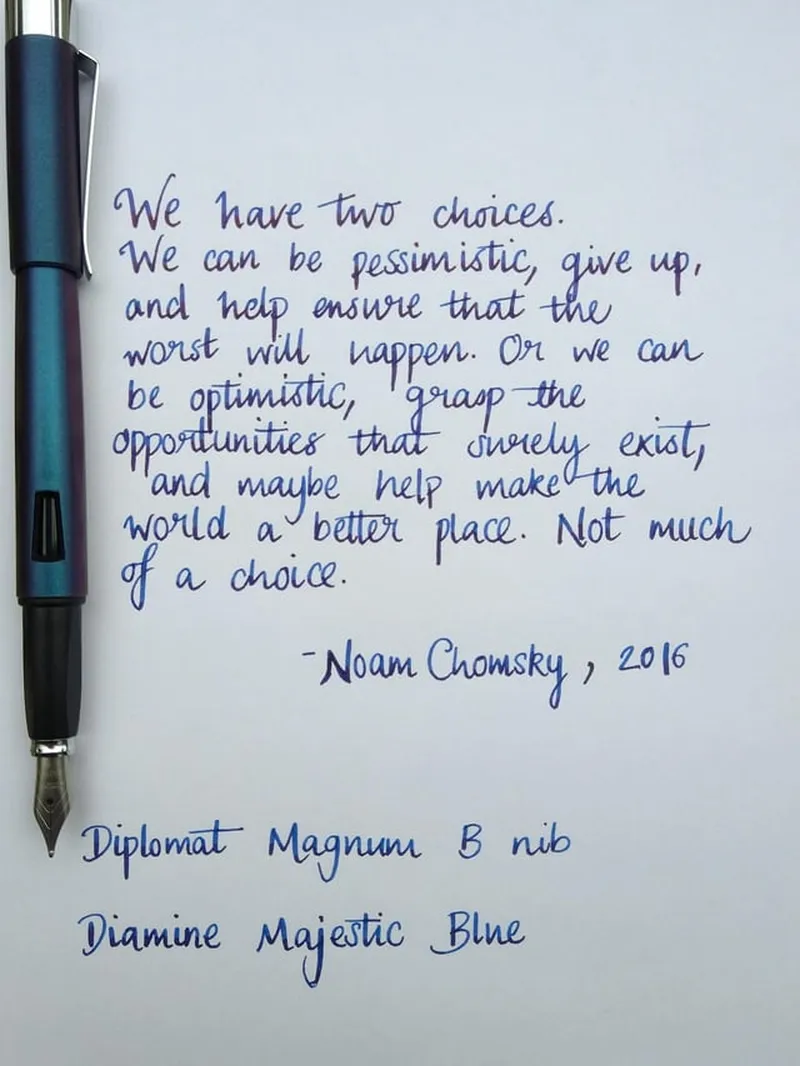 We have two choices.
We can be pessimistic, give up,
and help ensure that the
worst will happen. Or we can
be optimistic, grasp the
opportunities that surely exist,
and maybe help make the
world a better place. Not much
of a choice.
-Noam Chomsky, 2016
Diplomat Magnum B nib
Diamine Majestic Blue